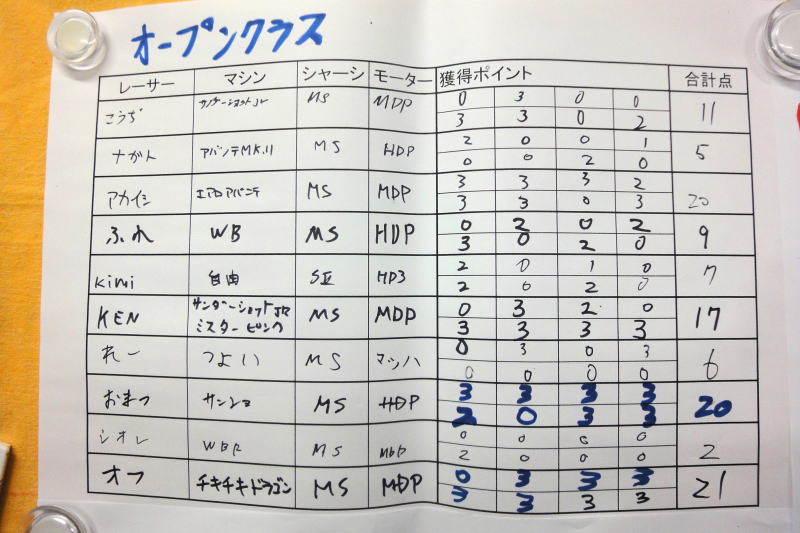 オープンクラス
レーサー マシン シャーシ モーター 獲得ポイント 合計点
こうじ サンダーショットJr MS MDP 0 3 0 0 11
3 3 0 2
ナガト アバンテMK.II MS HDP 2 0 0 1 5
0 0 2 0
アカイシ エアロアバンテ MS MDP 3 3 3 2 20
3 3 0 3
ふれ WB MS HDP 0 2 0 2 9
3 0 2 0
kimi 自由 SII HD3 2 0 1 0 7
2 0 2 0
KEN サンダーショットJR MS MDP 0 3 2 0 17
ミスターピンク 3 3 3 3
れー つよい MS マッハ 0 3 0 3 6
0 0 0 0
おまつ サンショ MS HDP 3 3 3 3 20
2 0 3 3
シオレ WBR MS MDP 0 0 0 0 2
2 0 0 0
オフ チキチキドラゴン MS MDP 0 3 3 3 21
3 3 3 3